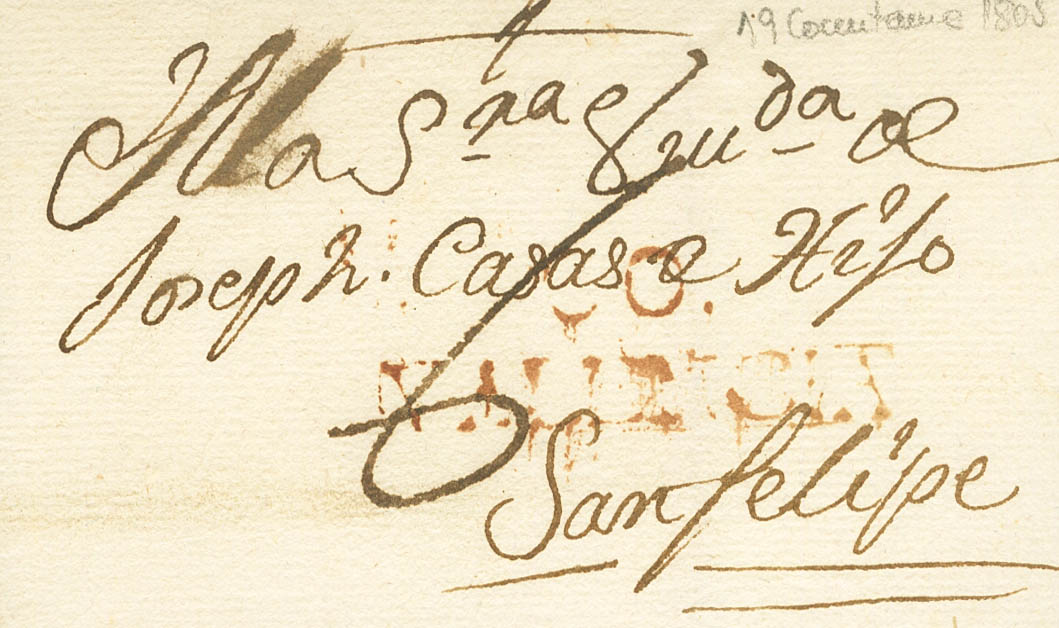 19 Cocentaina 1805
A la S.ra Viu.da de
Joseph. Casas e Hijo
V. O.
VALENCIA
San felipe